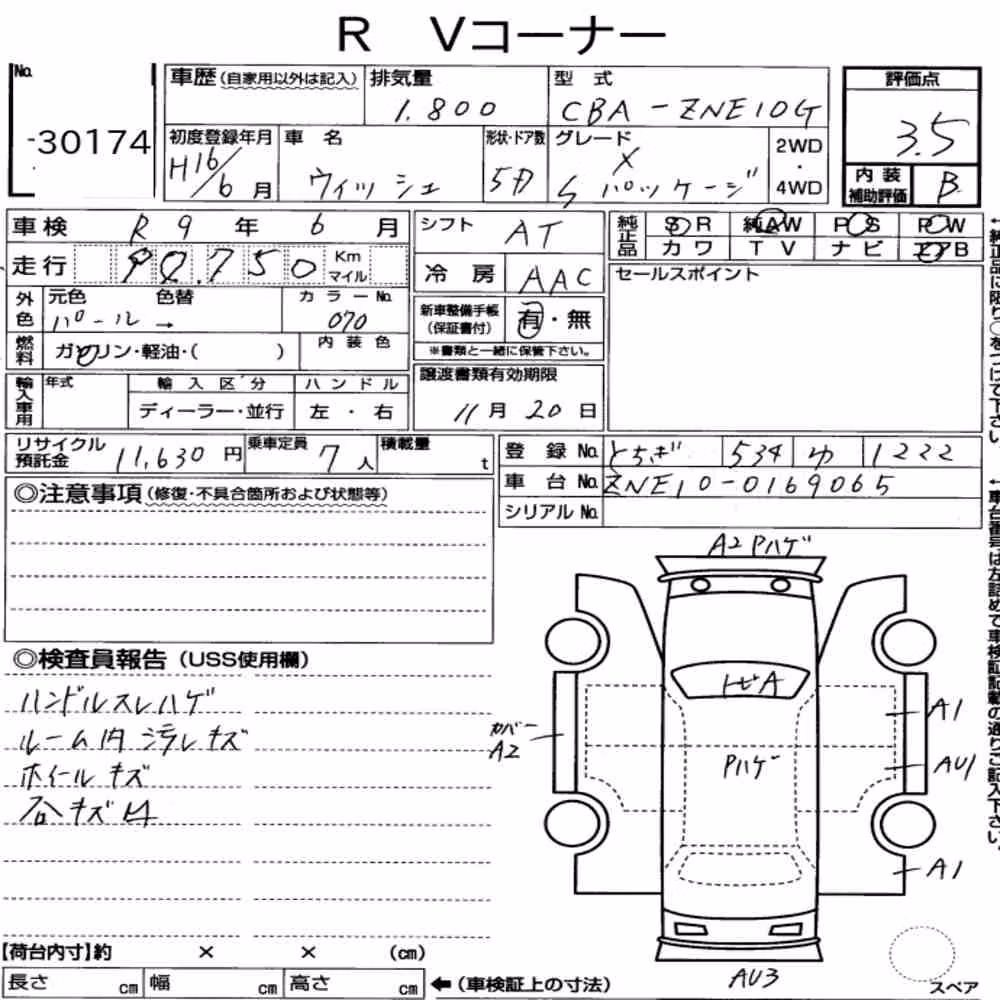 R Vコーナー
No. -30174
車歴(自家用以外は記入) 排気量 1.800 型式 CBA-ZNE10G 評価点 3.5
初度登録年月 H16/6月 車名 ウィッシュ 形状・ドア数 5D グレード X Sパッケージ 2WD・4WD
内装補助評価 B
車検 R9年6月 シフト AT 純正品 SR 純AW PS PW
カワ TV ナビ エアB
走行 92.750 Km マイル 冷房 AAC セールスポイント
外色 元色 パール 色替 → カラーNo. 070 新車整備手帳(保証書付) 有・無
燃料 ガソリン・軽油・( ) 内装色 ※書類と一緒に保管下さい。
輸入車用 年式 輸入区分 ディーラー・並行 ハンドル 左・右 譲渡書類有効期限 11月20日
リサイクル預託金 11,630円 乗車定員 7人 積載量 t 登録No. とちぎ 534 ゆ 1222
車台No. ZNE10-0169065
シリアルNo.
◎注意事項(修復・不具合箇所および状態等)
◎検査員報告(USS使用欄)
ハンドルスレハゲ
ルーム内汚レキズ
ホイールキズ
A2 Pハゲ
トビA
カバー A2
Pハゲ
A1
AU1
A1
AU3
スペア
【荷台内寸】約 × × (cm)
長さ cm 幅 cm 高さ cm ←(車検証上の寸法)
←純正品に限り○をつけて下さい。
←車台番号は左詰めで車検証記載の通りご記入下さい。